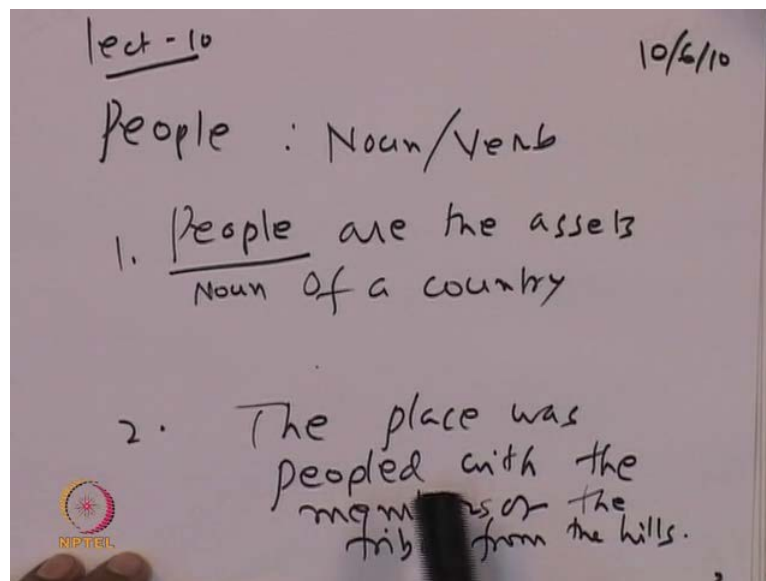 lect - 10
10/6/10
People : Noun/Verb
1. People are the assets
Noun of a country
2. The place was
peopled with the
the
from the hills.
NPTEL